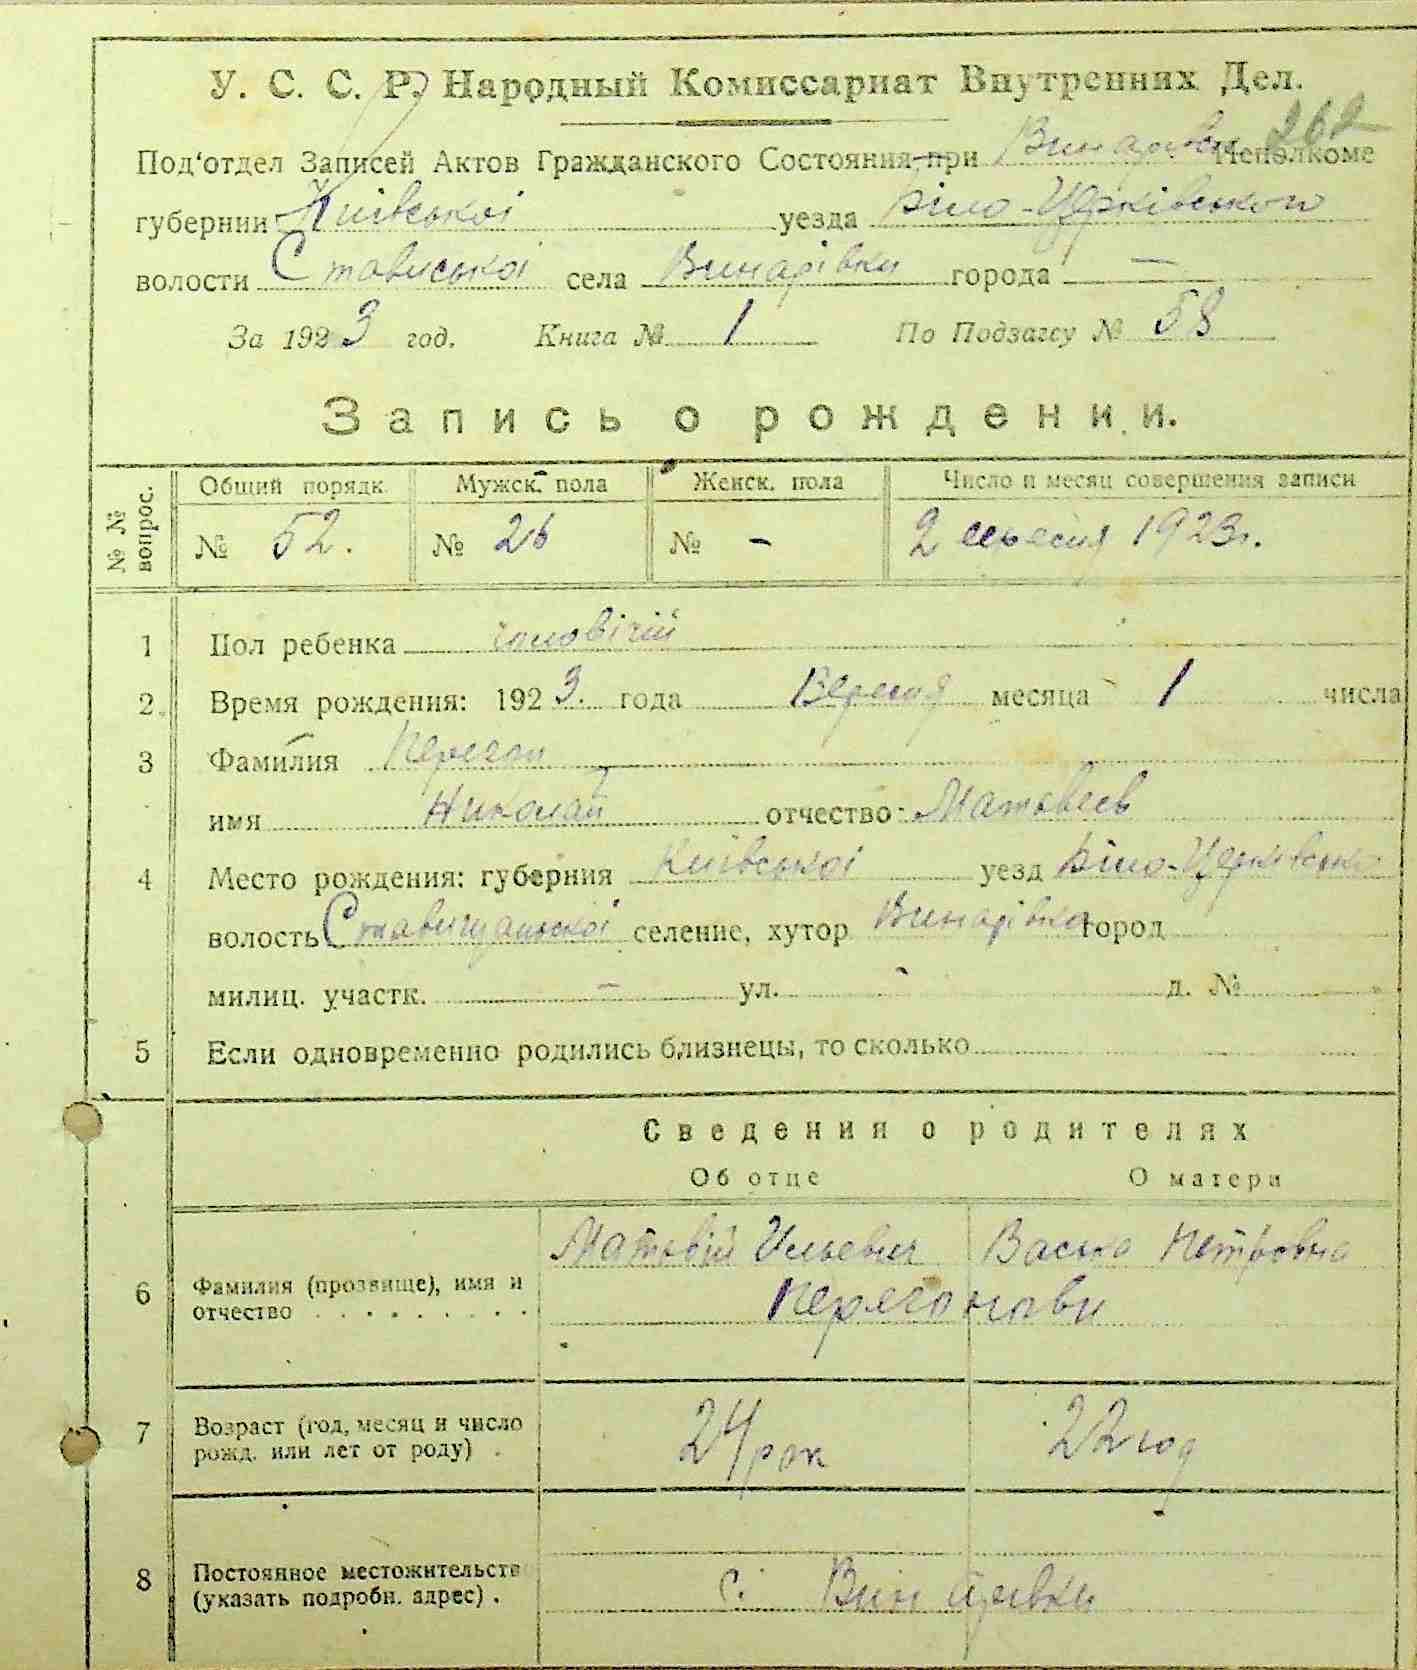 У. С. С. Р. Народный Комиссариат Внутренних Дел.
262
Под'отдел Записей Актов Гражданского Состояния при Винарівськ Исполкоме
губернии Київської уезда Біло-Церківського
волости Стависької села Винарівки города —
За 1923 год. Книга № 1 По Подзагсу № 58
Запись о рождении.
№ № вопрос. Общий порядк. Мужск. пола Женск. пола Число и месяц совершения записи
№ 52. № 26 № - 2 вересня 1923 г.
1 Пол ребенка чоловічій
2 Время рождения: 1923. года Вересня месяца 1 числа
3 Фамилия Перегон
имя Николай отчество Матвеев
4 Место рождения: губерния Київської уезд Біло-Церківсько
волость Ставищанської селение, хутор Винарівка город
милиц. участк. - ул. - д. №
5 Если одновременно родились близнецы, то сколько
Сведения о родителях
Об отце О матери
6 Фамилия (прозвище), имя и отчество Матвій Ильевич Васька Петровна
Перегонови
7 Возраст (год, месяц и число рожд. или лет от роду) . 24 рок 22 год
8 Постоянное местожительств (указать подробн. адрес) . с. Винарівки